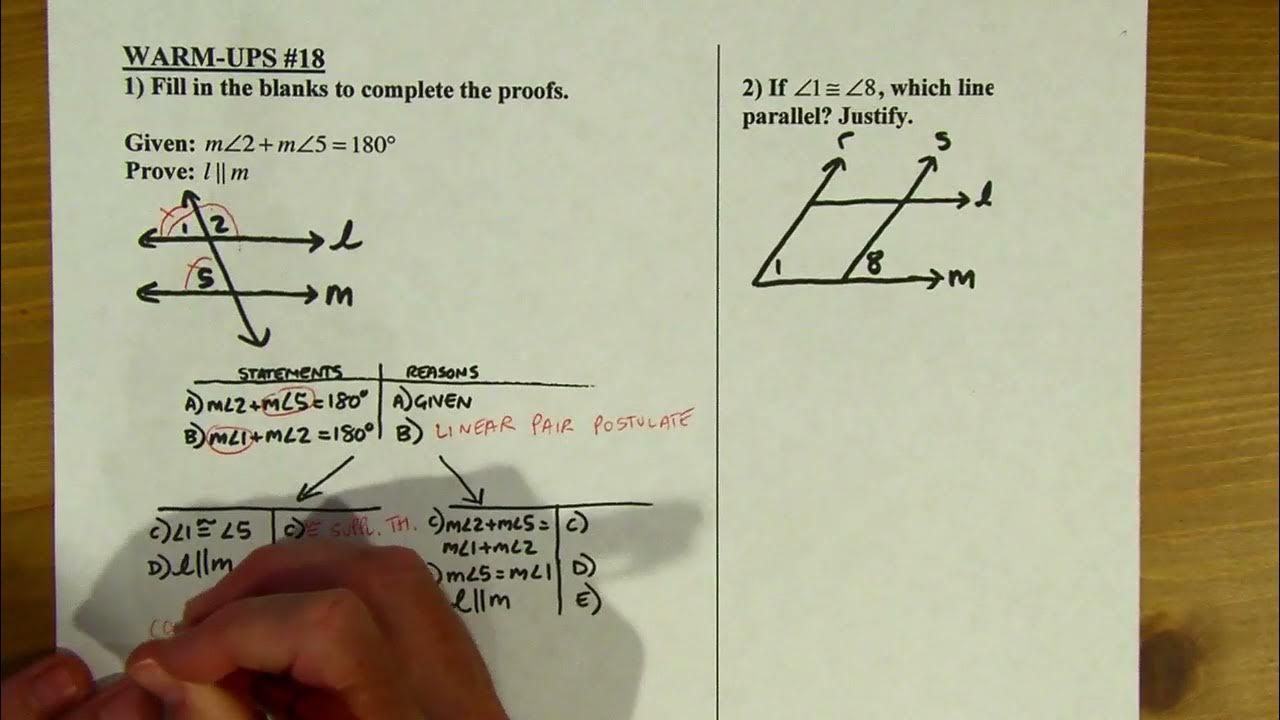 WARM-UPS #18
1) Fill in the blanks to complete the proofs.
Given: m∠2 + m∠5 = 180°
Prove: l || m
1 2
l
5
m
STATEMENTS REASONS
A) m∠2 + m∠5 = 180° A) GIVEN
B) m∠1 + m∠2 = 180° B) LINEAR PAIR POSTULATE
C) ∠1 ≅ ∠5 C) ≅ SUPPL. TH.
D) l || m
C) m∠2 + m∠5 = C)
m∠1 + m∠2
) m∠5 = m∠1 D)
l || m E)
2) If ∠1 ≅ ∠8, which line
parallel? Justify.
r s
l
1 8 m